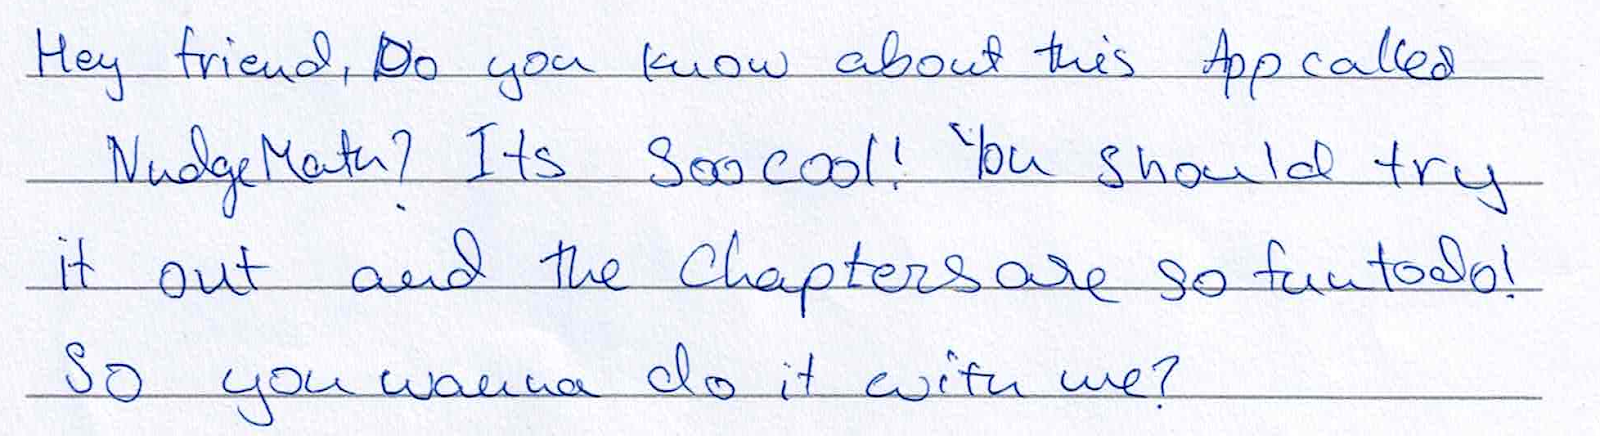 Hey friend, Do you know about this App called
NudgeMath? Its Soo cool! You should try
it out and the Chapters are so fun to do!
So you wanna do it with me?